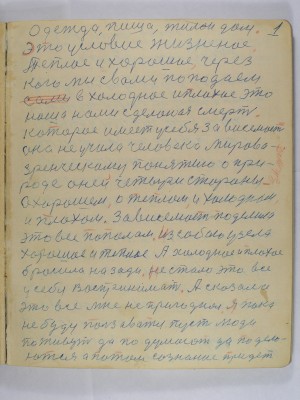 Одежда, пища, жилой дом. 1
Это условие жизненое.
Теплое и хорошее через
кого мы свами попадаем
в холодное и плохое это
наша нами сделаная смерть.
Которое имеет усебя Зависемость
она не учила человека мирово-
зренческому понятию о при-
роде о ней четыри стораны
О хорошем, о теплом и холодном
и плохом. Зависемость поделила
это все пополам, из собою узела
хорошое и теплое. А холодное и плохое
вросила назади, не стало это все
у себя Востренимать. А сказала
это все мне не пригодная. Я пока
не буду ползавати пуст люди
поживут да по думают да подела-
ются а потом сознание придет